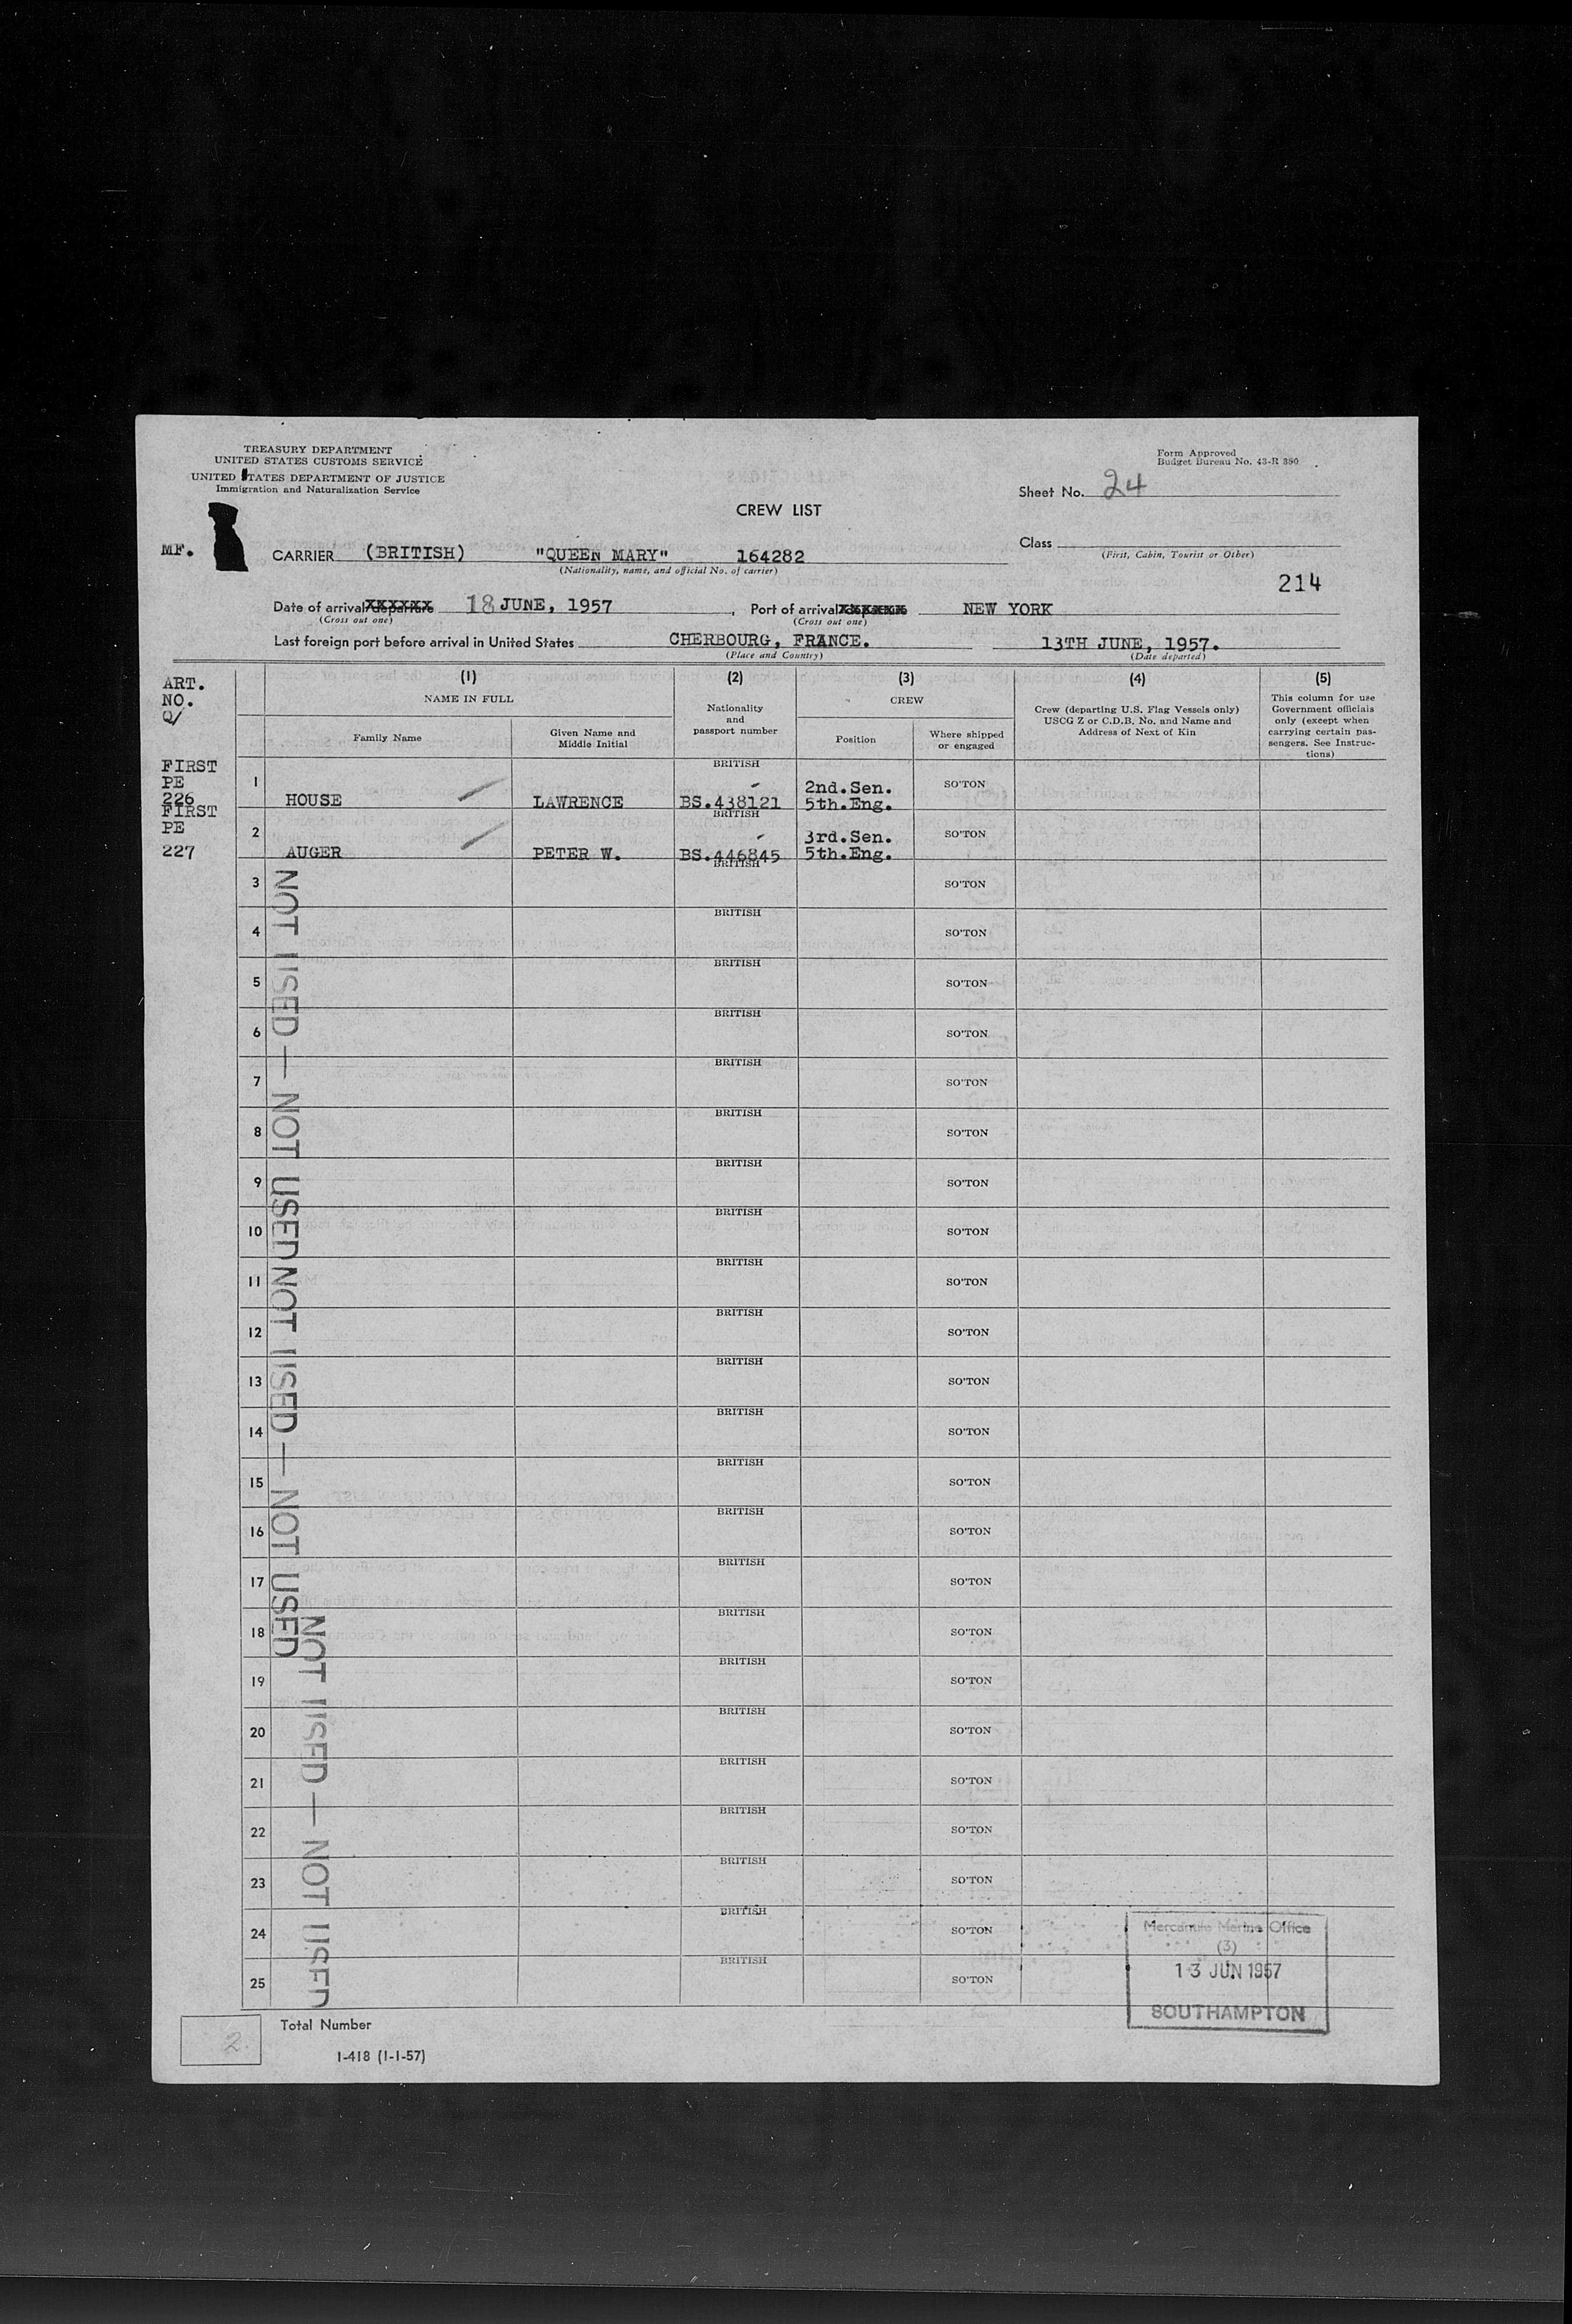 TREASURY DEPARTMENT
UNITED STATES CUSTOMS SERVICE
UNITED STATES DEPARTMENT OF JUSTICE
Immigration and Naturalization Service
Form Approved
Budget Bureau No. 43-R 380
Sheet No. 24
CREW LIST
MF.
CARRIER (BRITISH) "QUEEN MARY" 164282
(Nationality, name, and official No. of carrier)
Class
(First, Cabin, Tourist or Other)
214
Date of arrival departure 18 JUNE, 1957, Port of arrival NEW YORK
(Cross out one) (Cross out one)
Last foreign port before arrival in United States CHERBOURG, FRANCE. 13TH JUNE, 1957.
(Place and Country) (Date departed)
ART.
NO.
Q/
(1) (2) (3) (4) (5)
NAME IN FULL
Family Name
Given Name and
Middle Initial
Nationality
and
passport number
CREW
Position
Where shipped
or engaged
Crew (departing U.S. Flag Vessels only)
USCG Z or C.D.B. No. and Name and
Address of Next of Kin
This column for use
Government officials
only (except when
carrying certain pas-
sengers. See Instruc-
tions)
FIRST
PE
226
1 HOUSE LAWRENCE BRITISH BS.438121 2nd.Sen. 5th.Eng. SO'TON
FIRST
PE
227
2 AUGER PETER W. BRITISH BS.446845 3rd.Sen. 5th.Eng. SO'TON
3 BRITISH SO'TON
4 BRITISH SO'TON
5 BRITISH SO'TON
6 BRITISH SO'TON
7 BRITISH SO'TON
8 BRITISH SO'TON
9 BRITISH SO'TON
10 BRITISH SO'TON
11 BRITISH SO'TON
12 BRITISH SO'TON
13 BRITISH SO'TON
14 BRITISH SO'TON
15 BRITISH SO'TON
16 BRITISH SO'TON
17 BRITISH SO'TON
18 BRITISH SO'TON
19 BRITISH SO'TON
20 BRITISH SO'TON
21 BRITISH SO'TON
22 BRITISH SO'TON
23 BRITISH SO'TON
24 BRITISH SO'TON
25 BRITISH SO'TON
NOT USED — NOT USED
NOT USED — NOT USED
NOT USED — NOT USED
Mercantile Marine Office
(3)
13 JUN 1957
SOUTHAMPTON
2. Total Number
I-418 (1-1-57)